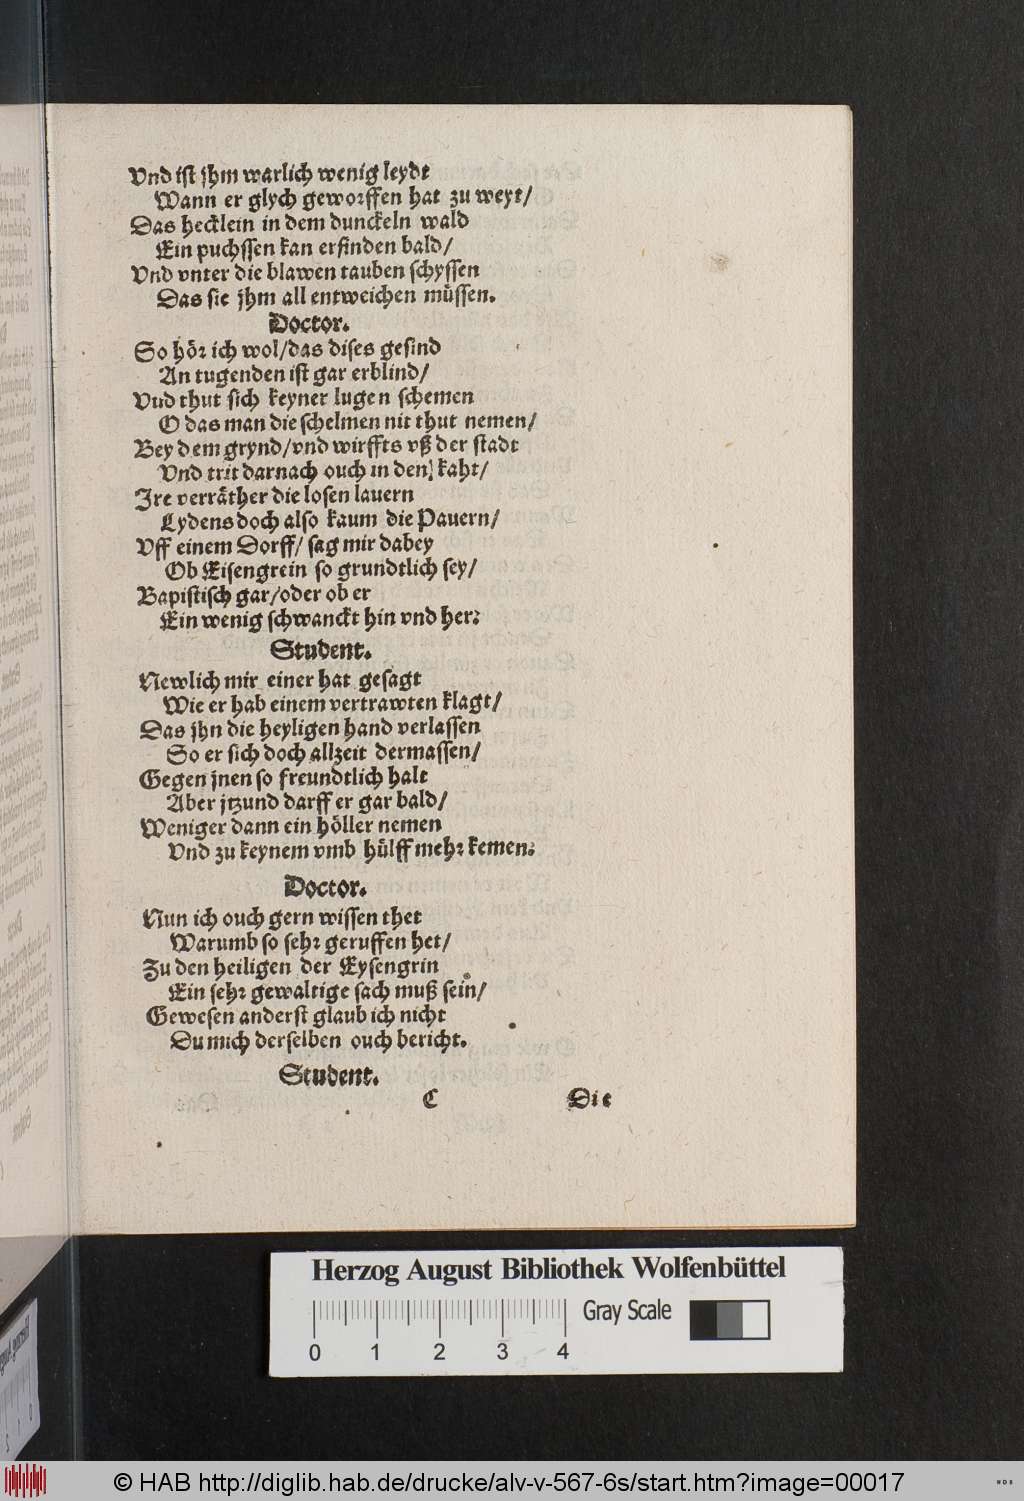 Vnd ist jhm warlich wenig leydt
Wann er glych geworffen hat zu weyt/
Das hecklein in dem dunckeln wald
Ein puchssen kan erfinden bald/
Vnd vnter die blawen tauben schyssen
Das sie jhm all entweichen müssen.
Doctor.
So hör ich wol/das dises gesind
An tugenden ist gar erblind/
Vud thut sich keyner lugen schemen
O das man die schelmen nit thut nemen/
Bey dem grynd/vnd wirffts vß der stadt
Vnd trit darnach ouch in den kaht/
Ire verräther die losen lauern
Lydens doch also kaum die Pauern/
Vff einem Dorff/ sag mir dabey
Ob Eisengrein so grundtlich sey/
Bapistisch gar/oder ob er
Ein wenig schwanckt hin vnd her:
Student.
Newlich mir einer hat gesagt
Wie er hab einem vertrawten klagt/
Das jhn die heyligen hand verlassen
So er sich doch allzeit dermassen/
Gegen jnen so freundtlich halt
Aber jtzund darff er gar bald/
Weniger dann ein höller nemen
Vnd zu keynem vmb hülff mehr kemen:
Doctor.
Nun ich ouch gern wissen thet
Warumb so sehr geruffen het/
Zu den heiligen der Eysengrin
Ein sehr gewaltige sach muß sein/
Gewesen anderst glaub ich nicht
Du mich derselben ouch bericht.
Student.
C Die
Herzog August Bibliothek Wolfenbüttel
Gray Scale
0 1 2 3 4
© HAB http://diglib.hab.de/drucke/alv-v-567-6s/start.htm?image=00017